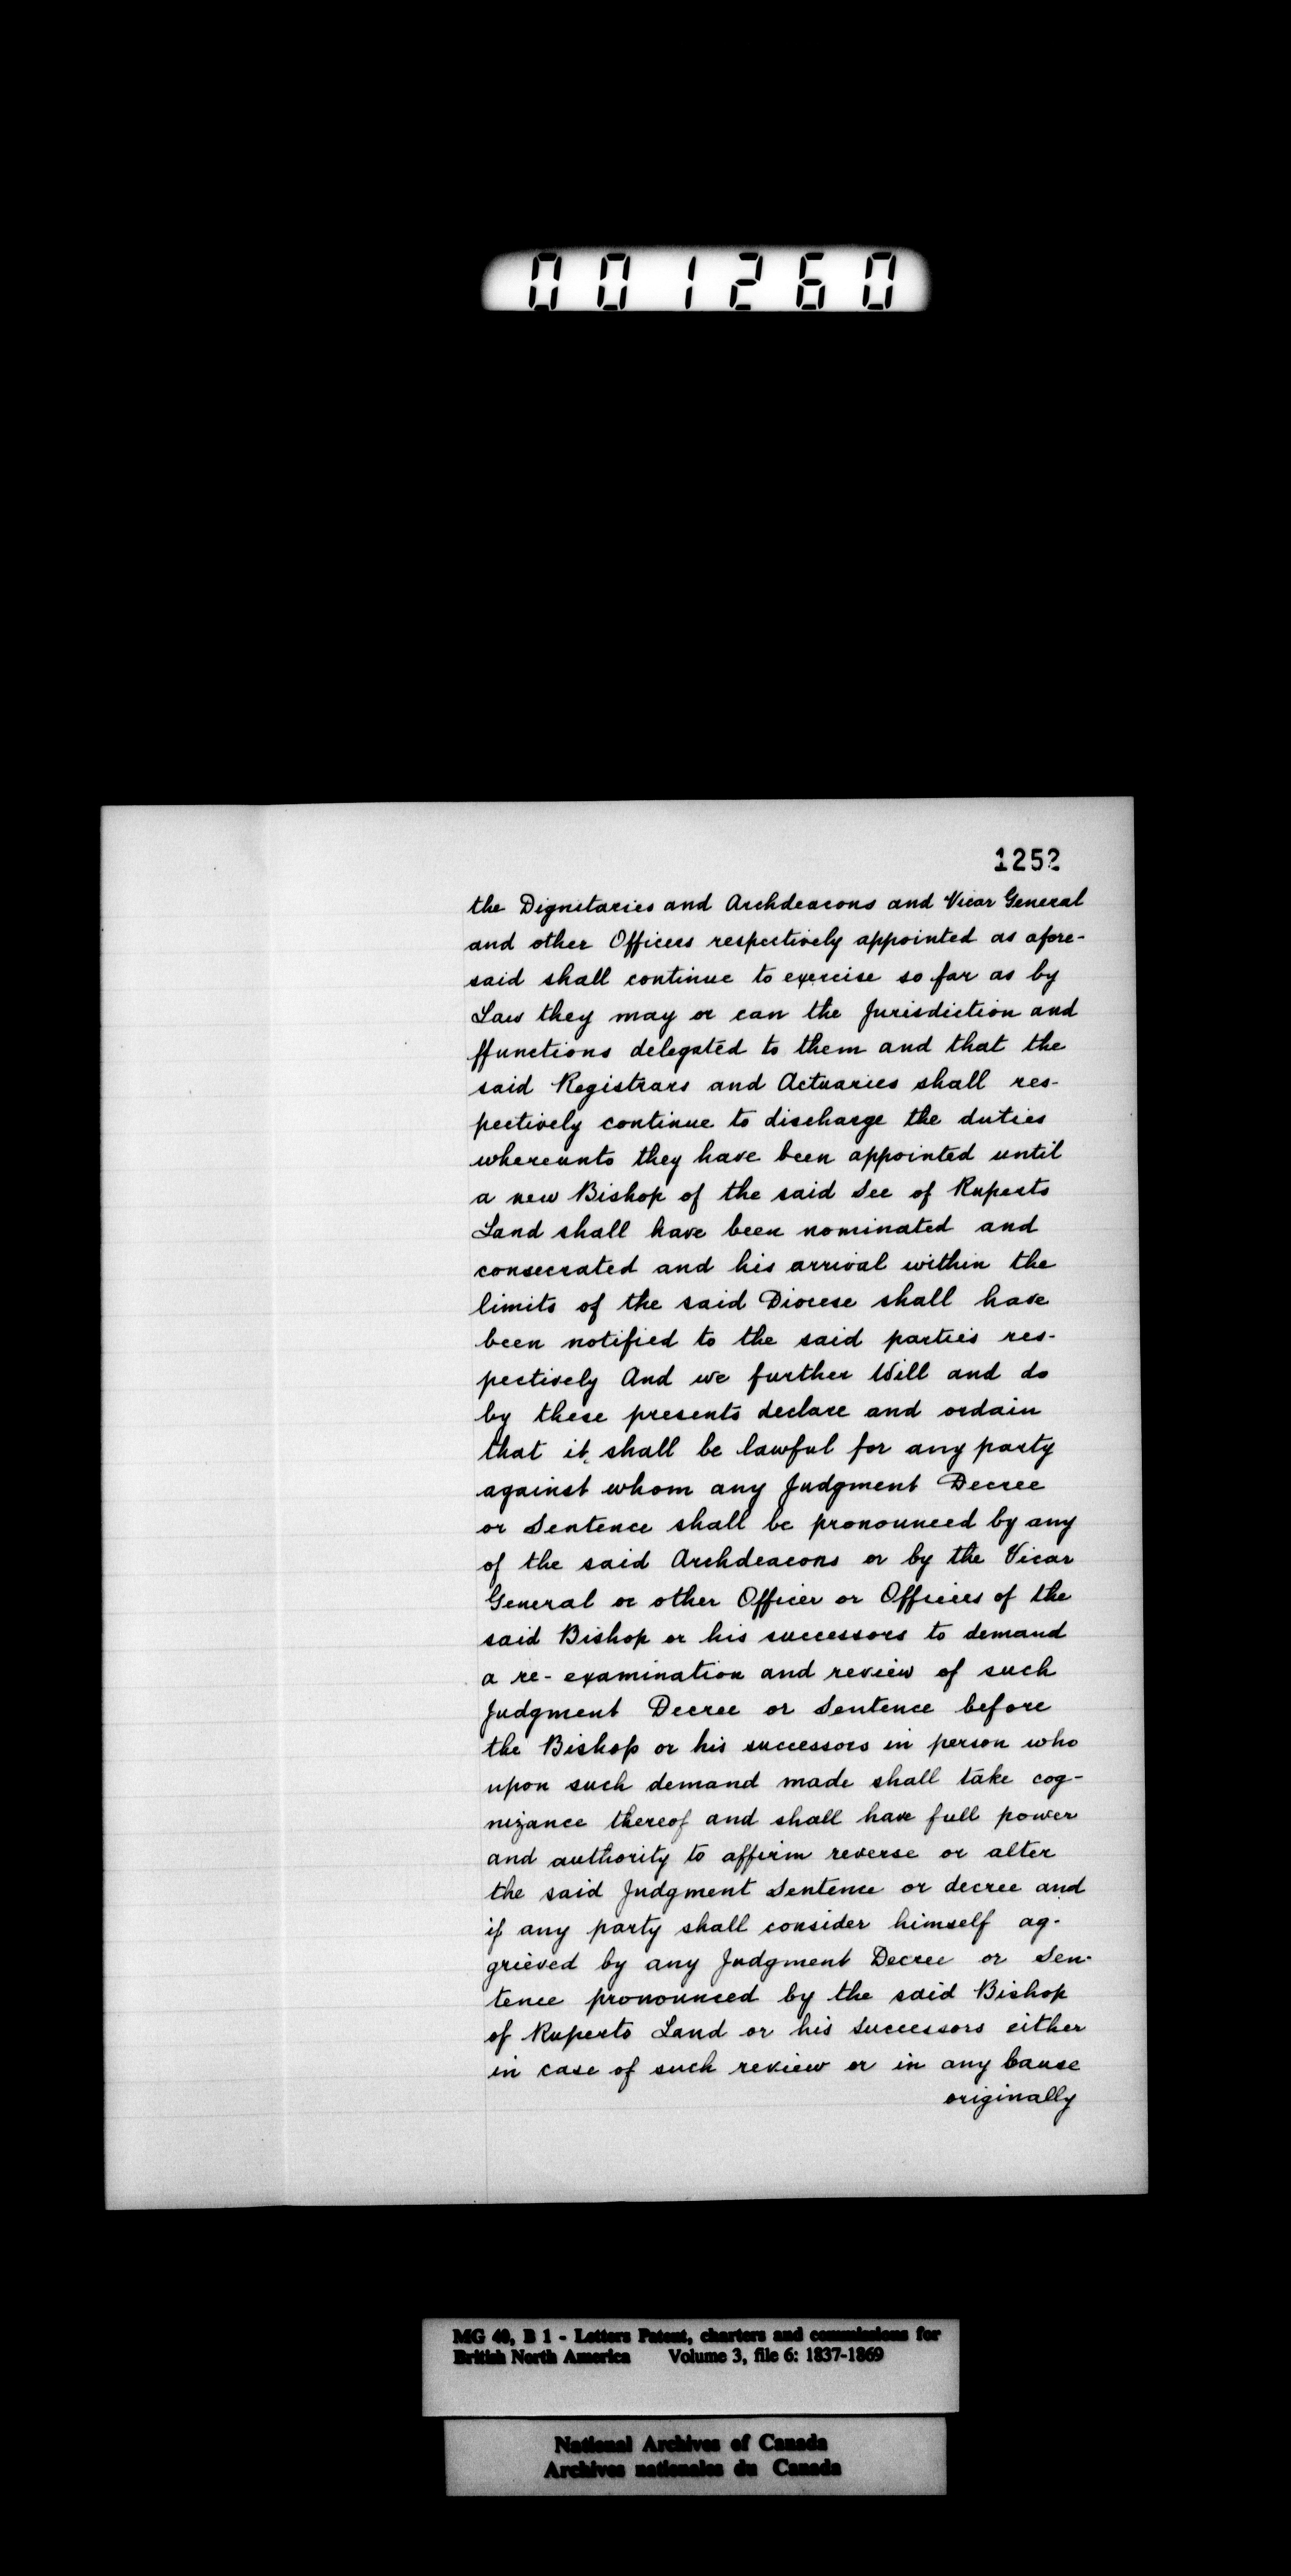 001260
1252
the Dignitaries and Archdeacons and Vicar General
and other Officers respectively appointed as afore-
said shall continue to exercise so far as by
Law they may or can the Jurisdiction and
ffunctions delegated to them and that the
said Registrars and Actuaries shall res-
pectively continue to discharge the duties
whereunto they have been appointed until
a new Bishop of the said See of Ruperts
Land shall have been nominated and
consecrated and his arrival within the
limits of the said Diocese shall have
been notified to the said parties res-
pectively And we further Will and do
by these presents declare and ordain
that it shall be lawful for any party
against whom any Judgment Decree
or Sentence shall be pronounced by any
of the said Archdeacons or by the Vicar
General or other Officer or Officers of the
said Bishop or his successors to demand
a re-examination and review of such
Judgment Decree or Sentence before
the Bishop or his successors in person who
upon such demand made shall take cog-
nizance thereof and shall have full power
and authority to affirm reverse or alter
the said Judgment Sentence or decree and
if any party shall consider himself ag-
grieved by any Judgment Decree or Sen-
tence pronounced by the said Bishop
of Ruperts Land or his successors either
in case of such review or in any Cause
originally
MG 40, B 1 - Letters Patent, charters and commissions for
British North America Volume 3, file 6: 1837-1869
National Archives of Canada
Archives nationales du Canada